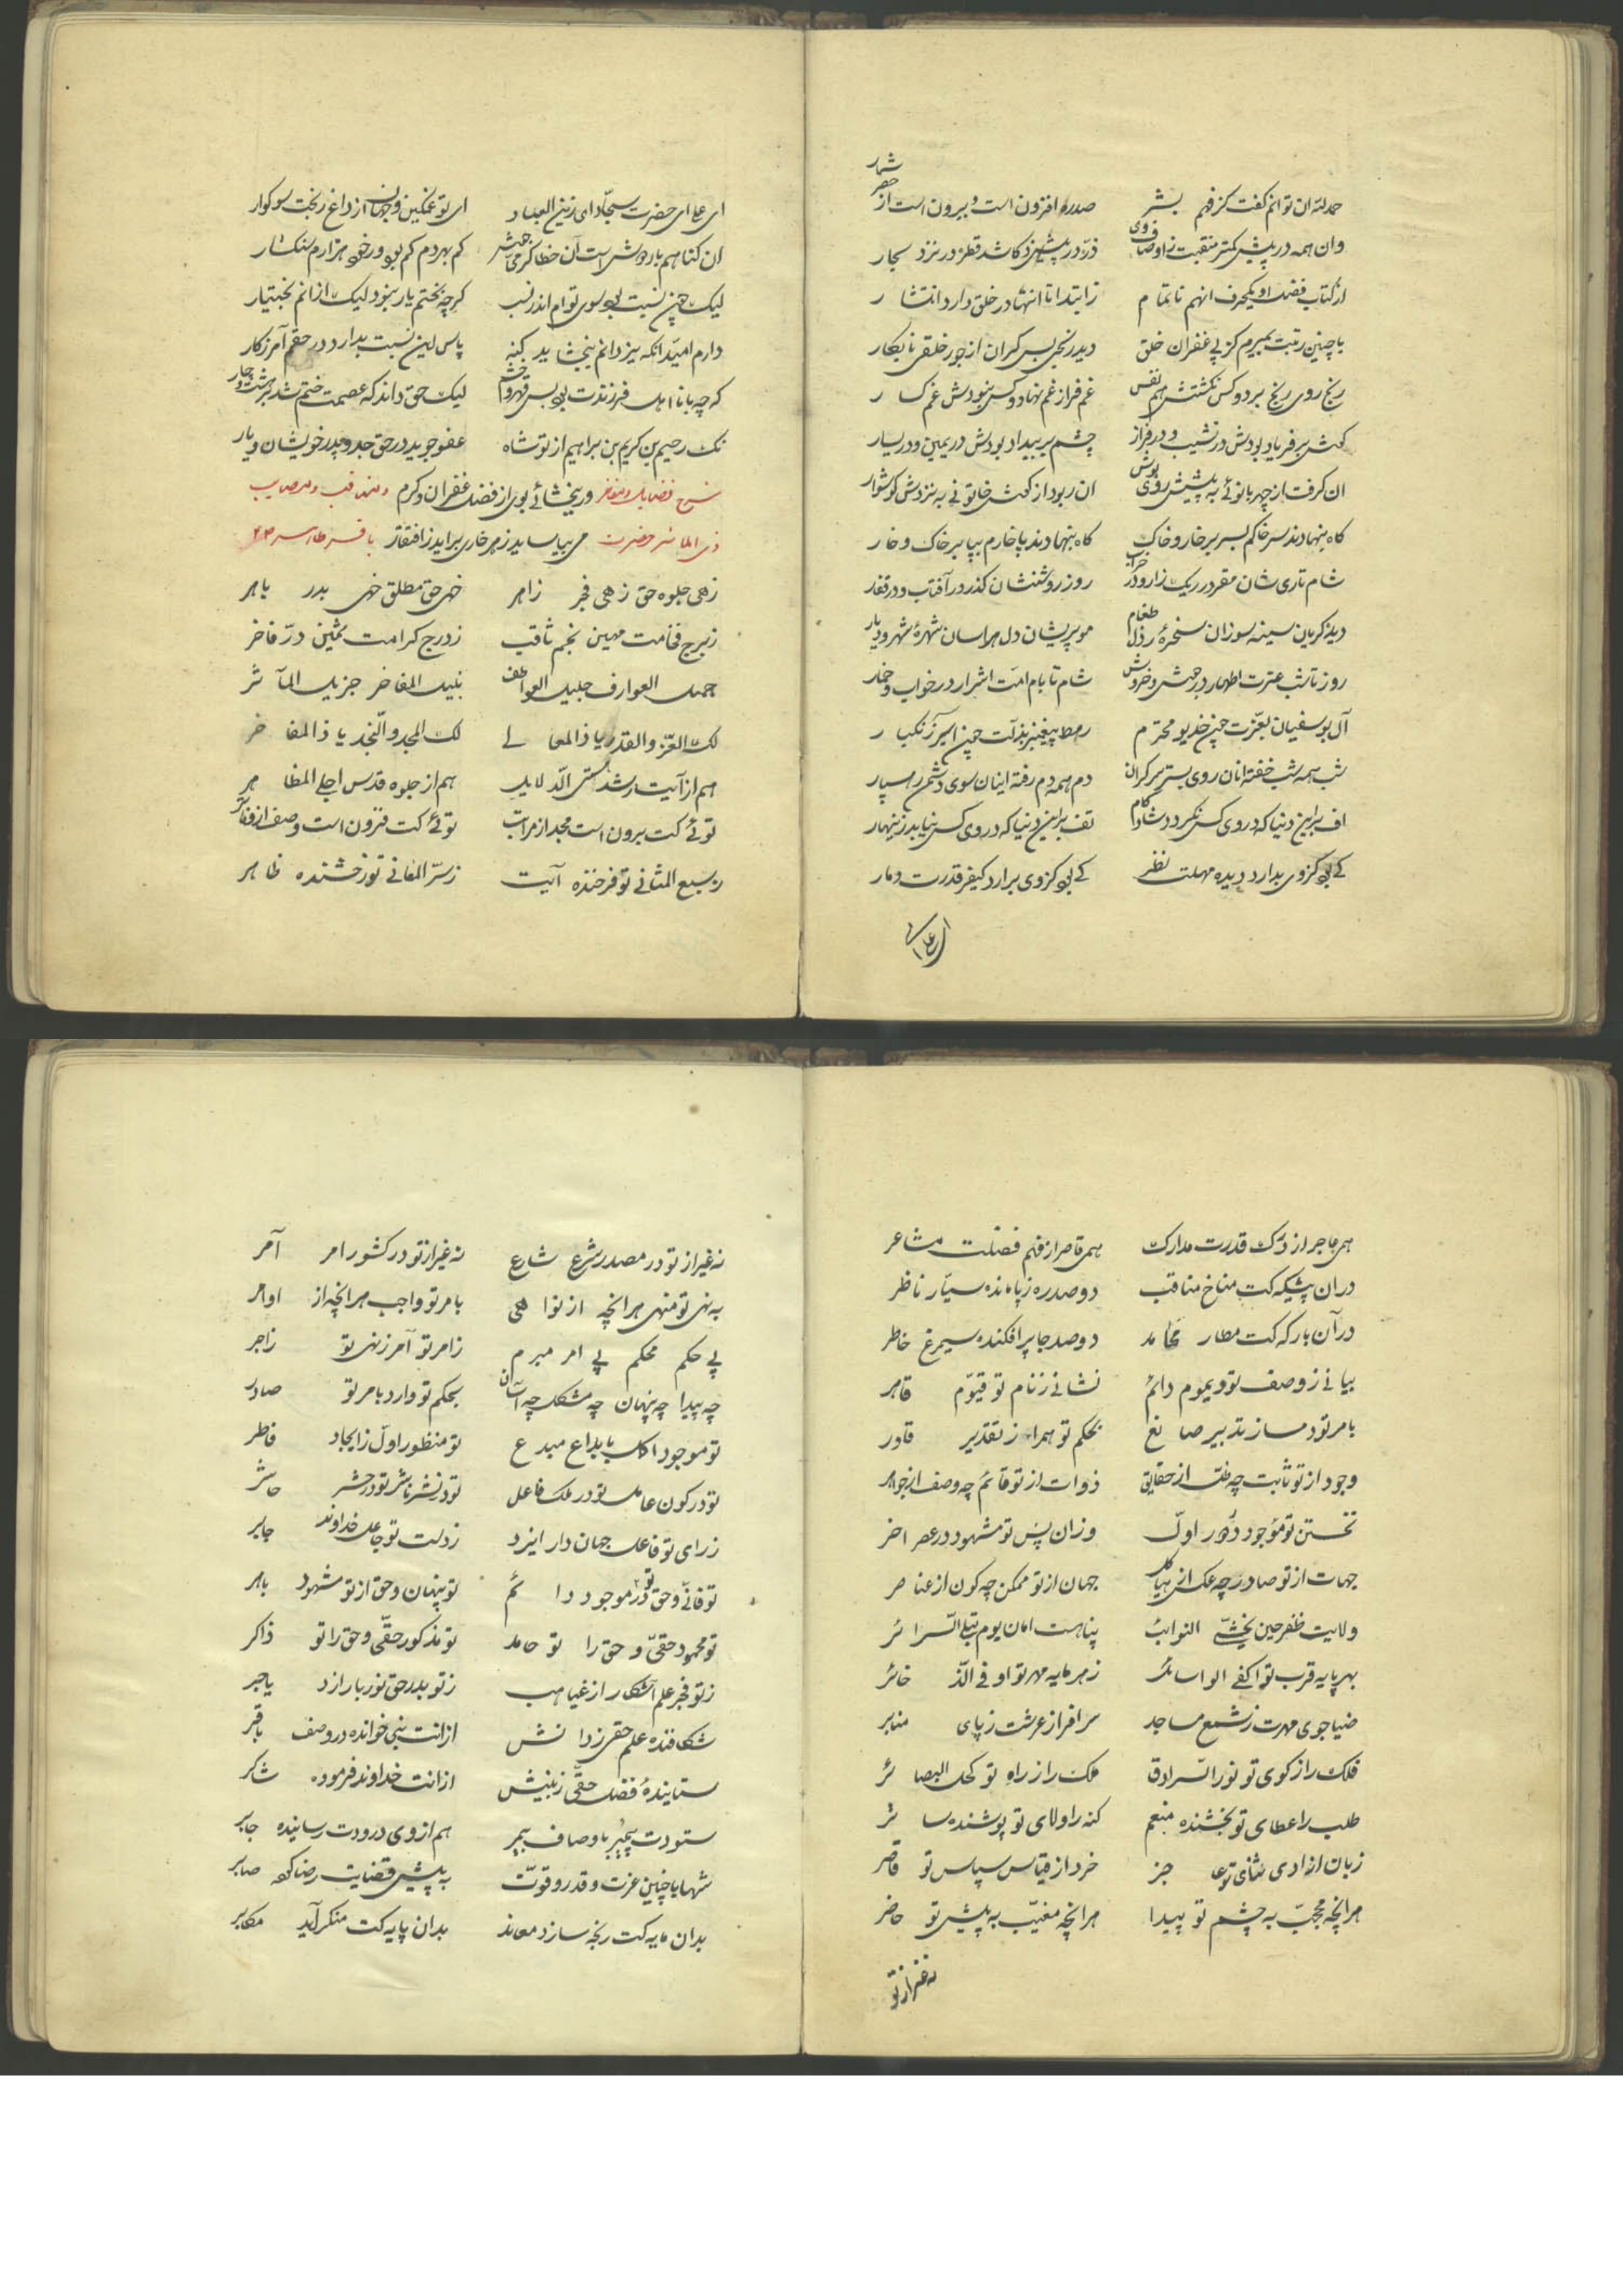 حمد لله ان توانم گفت کز فهم بشر صدره افزون است و بیرون است از حصر شمار
وان همه در پیش کمتر منقبت ز اوصاف وی ذره در پیش ذکا شد قطره در نزد بحار
از کتاب فضل او یکحرف انهم ناتمام ز ابتدا تا انتها در خلق دارد انتشار
با چنین رتبت بمیرم کز پی غفران خلق دید رنجی بس گران از جور خلقی نابکار
رنج روی رنج برد و کس نگشتش هم نفس غم فراز غم نهاد و کس نبودش غم گسار
گوش بر فریاد بودش در نشیب و در فراز چشم بر بیداد بودش در یمین و در یسار
ان گرفت از چهر بانوئی به پیشش روی پوش ان ربود از گوش خاتونی به نزدش گوشوار
گاه بنهادند سر خاکم بسر بر خار و خاک گاه بنهادند پا خارم بپا بر خاک و خار
شام تاری شان مقر در ریک زار و در روز روشنشان گذر در آفتاب و در قفار
دیده گریان سینه سوزان سخرهٔ رذل طغام مو پریشان دل هراسان شهرهٔ شهر و دیار
روز تا شب عترت اطهار در جوش و خروش شام تا بام امت اشرار در خواب و خمار
آل بوسفیان بعزت چون خدیو محترم رهط پیغمبر بذلت چون اسیر زنگبار
شب همه شب خفته انان روی بستر سرگران دم همه دم رفته اینان سوی دشمن رهسپار
اف براین دنیا که در وی کس نگردد شادکام تف براین دنیا که در وی کس نیابد زینهار
کی بود کز وی بدارد دیده مهلت نظر کی بود کز وی برارد کیفر قدرت دمار
ای علی ای
ای علی ای حضرت سجاد ای زین العباد ای تو غمگین و جهان از داغ رنجت سوگوار
ان گناهم بار دوش است آن خطا کز می
لیک چون نسبت بود سوی توام اندر نسب گرچه بختم یار نبود لیک از انم بختیار
دارم امید انکه یزدانم ببخشاید گنه پاس این نسبت بدارد در حقم آمرزگار
گرچه بانا اهل فرزندت بود بس قهر و خشم لیک حق داند که عصمت ختم شد بر هشت و چار
نک رحیم بن کریم بن براهیم از تو شاه عفو جوید در حق جد و پدر خویشان و یار
شرح فضایل و مفاخر ور ببخشائی بوی از فضل غفران و کرم و مناقب و مصایب
می بیاساید ز هر خاری براید ز افتقار
زهی جلوه حق زهی فجر زاهر خهی حق مطلق خهی بدر باهر
ز برج فخامت مهین نجم ثاقب ز درج کرامت ثمین در فاخر
جمیل العوارف جلیل العواطف نبیل المفاخر جزیل المآثر
لک العز و القدر یا ذا المعالی لک المجد و النجد یا ذا المفاخر
هم از آیت رشد سنی الدلایل هم از جلوه قدس اجلی المظاهر
توئی کت برون است مجد از مراتب توئی کت فزون است وصف از دفاتر
ز سبع المثانی تو فرخنده آیت ز سر المغانی تو رخشنده ظاهر
همی عاجز از درک قدرت مدارک همی قاصر از فهم فضلت مشاعر
در ان پیشگه کت مناخ مناقب دو صد ره ز پا مانده سیار ناظر
در آن بارگه کت مطار محامد دو صد جا پر افکنده سیمرغ خاطر
بیانی ز وصف تو دیموم دائم نشانی ز نام تو قیوم قاهر
بامر تو دمساز تدبیر صانع بحکم تو همراه ز تقدیر قادر
وجود از تو ثابت چه ظل از حقایق ذوات از تو قائم چه وصف از جواهر
نخستین تو موجود دور اول وزان پس تو مشهود در عصر اخر
جهات از تو صادر چه عکس از هیاکل جهان از تو ممکن چه کون از عناصر
ولایت ظفر حین یخشی النوائب پناهت امان یوم تبلی السرائر
بهر پایه قرب تو اکفی الوسائل ز هر مایه مهر تو اوفی الذخائر
ضیاجوی مهرت ز شمع مساجد سر افراز عرشت ز پای منابر
فلک را ز کوی تو نور السرادق ملک را ز راه تو کحل البصائر
طلب را عطای تو بخشنده منعم گنه را ولای تو پوشنده ساتر
زبان از ادی ثنای تو عاجز خرد از قیاس سپاس تو قاصر
هر انچه محجب به چشم تو پیدا هر انچه مغیب به پیش تو حاضر
نه غیر از تو
نه غیر از تو در مصدر شرع شارع نه غیر از تو در کشور امر آمر
به نهی تو منهی هر انچه از نواهی بامر تو واجب هر انچه از اوامر
پی حکم محکم پی امر مبرم ز امر تو آمر ز نهی تو زاجر
چه پیدا چه پنهان چه مشکل چه آسان بحکم تو وارد بامر تو صادر
تو موجود اکمل بابداع مبدع تو منظور اول ز ایجاد فاطر
تو در کون عامل تو در ملک فاعل تو در نشر ناشر تو در حشر حاشر
ز رای تو فاعل جهان دار ایزد ز دلت تو جاعل خداوند جابر
تو فانی و حق در تو موجود دائم تو پنهان و حق از تو مشهود باهر
تو محمود حقی و حق را تو حامد تو مذکور حقی و حق را تو ذاکر
ز تو فجر علم آشکار از غیاهب ز تو بدر حق نور بار از دیاجر
شکافنده علم حقی ز دانش ازانت نبی خوانده در وصف باقر
ستایندهٔ فضل حقی ز بینش ازانت خداوند فرموده شاکر
ستودت پیمبر باوصاف بیمر هم از وی درودت رسانیده جابر
شها با چنین عزت و قدر و قوت به پیش قضایت رضا گفته صابر
بدان مایه کت رنجه سازد معاند بدان پایه کت منکر آید مکابر